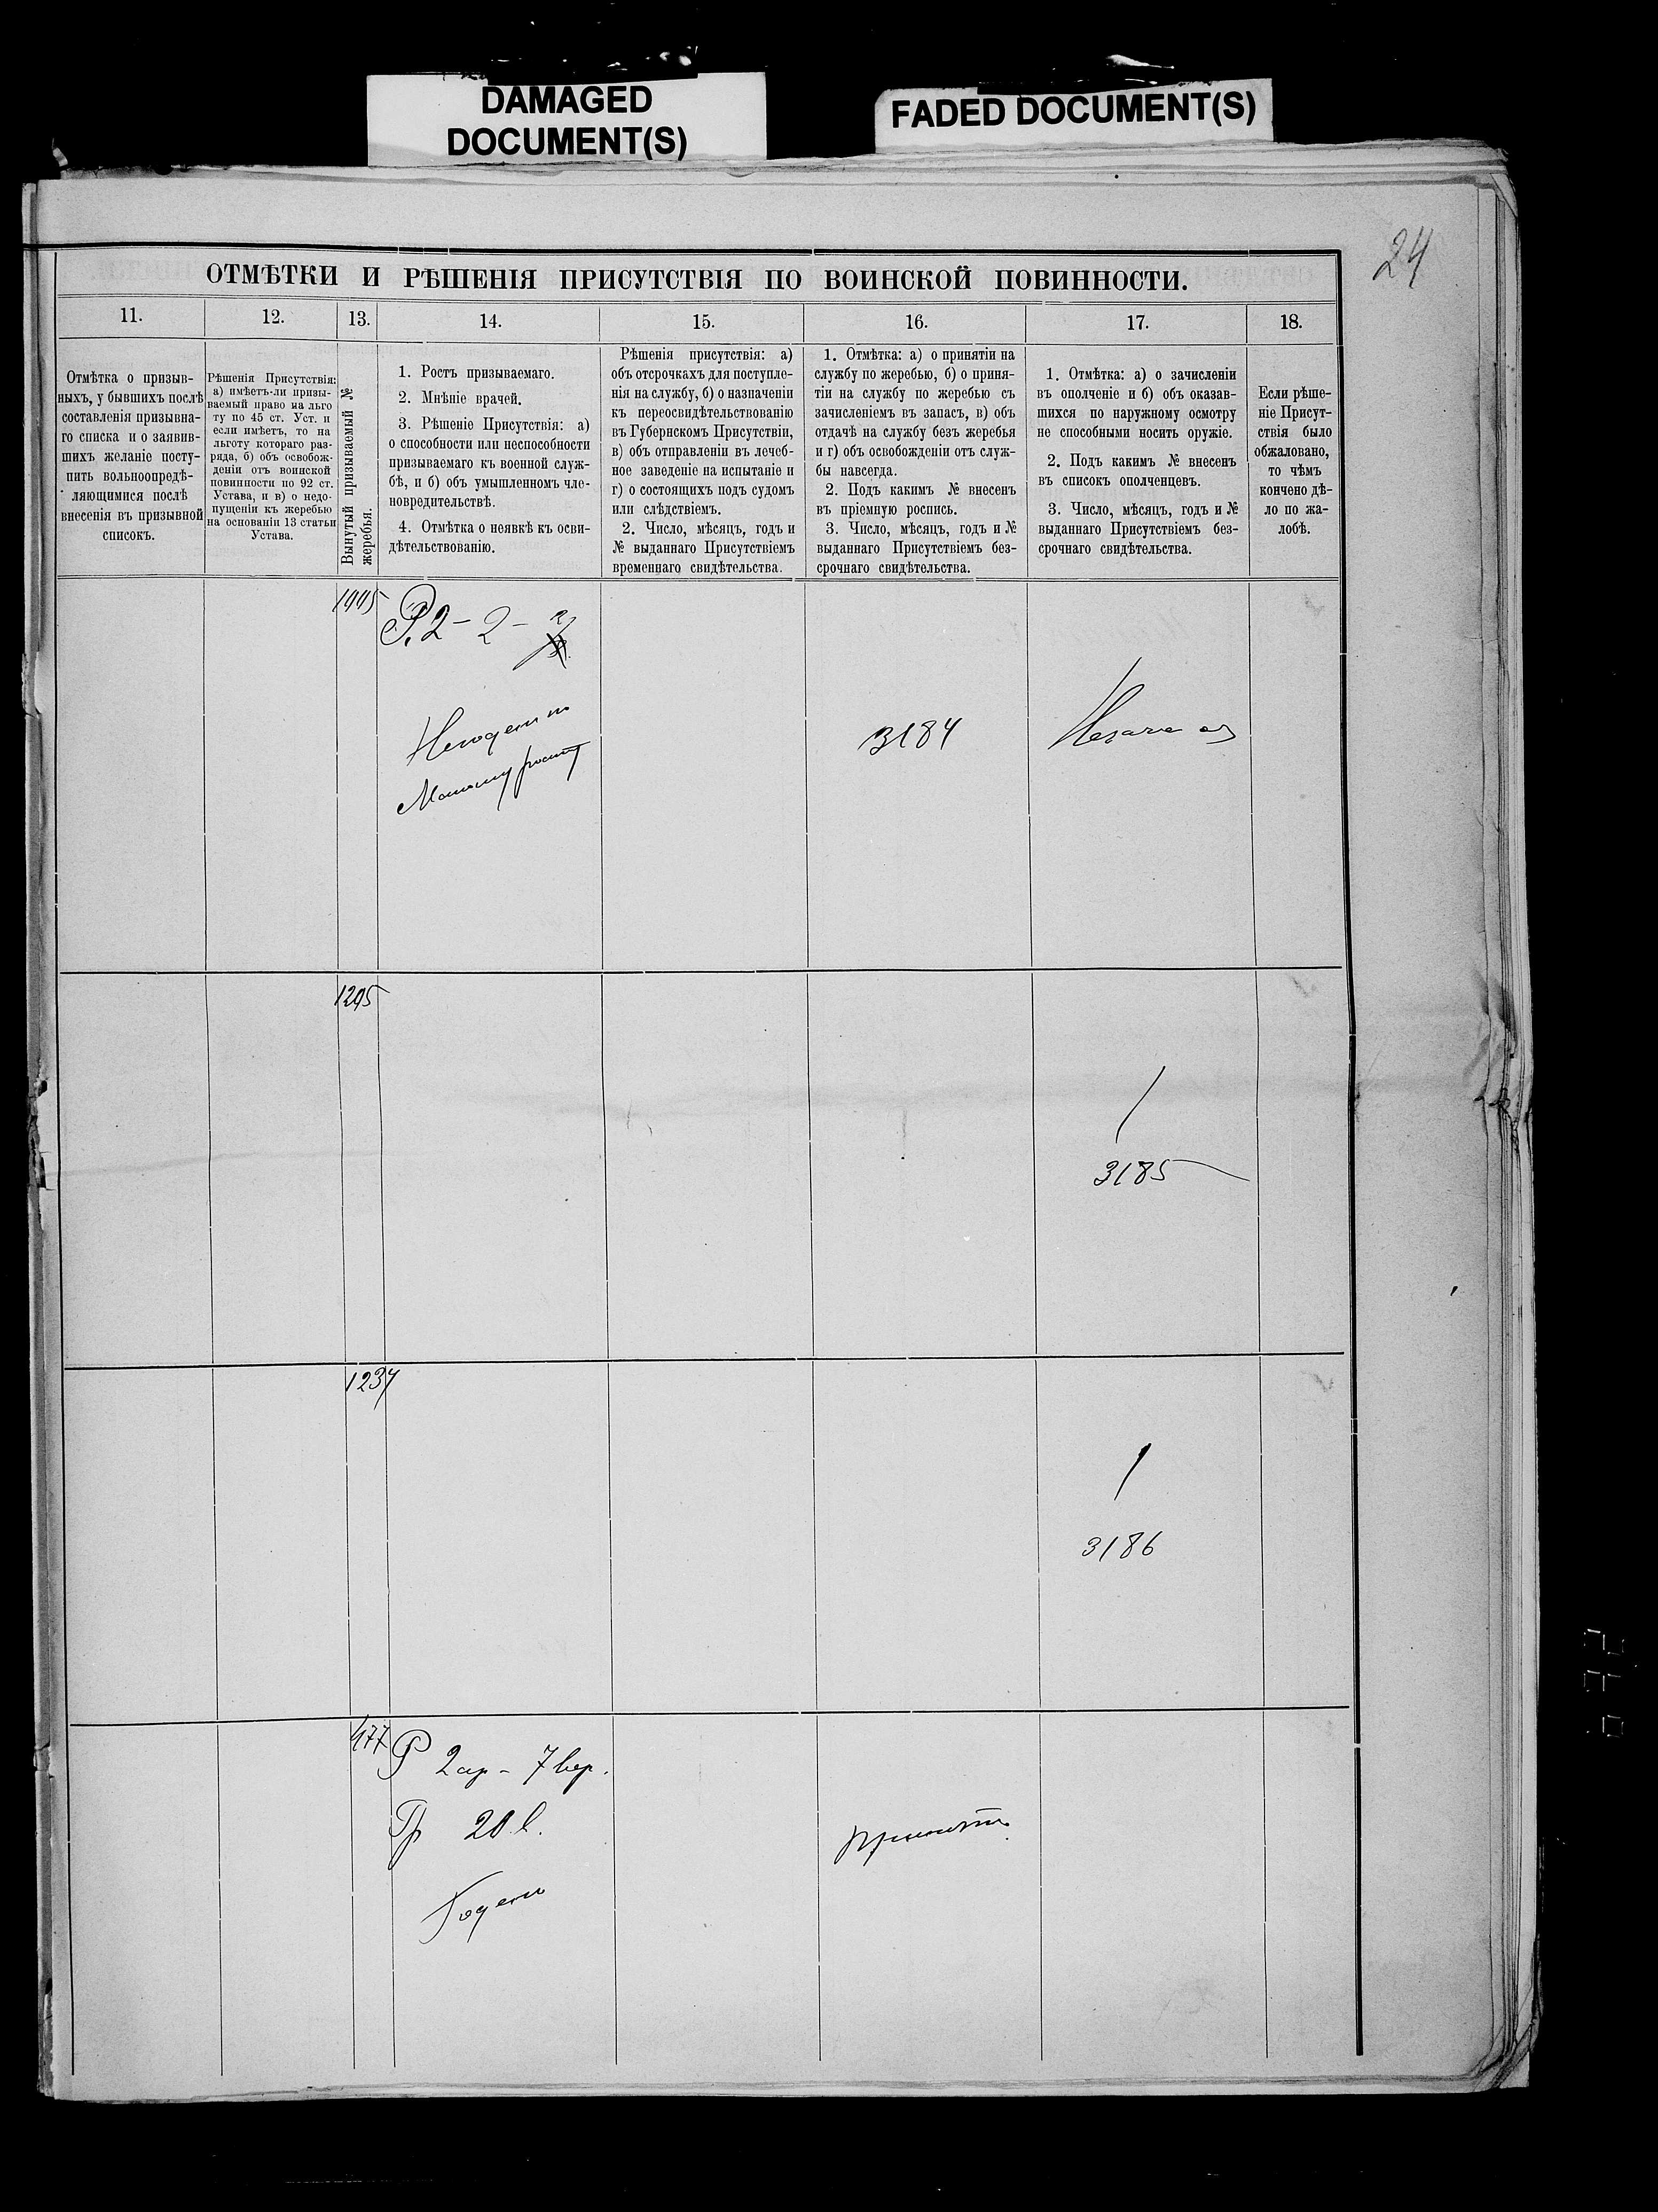 DAMAGED
DOCUMENT(S)
FADED DOCUMENT(S)
24
ОТМѢТКИ И РѢШЕНІЯ ПРИСУТСТВІЯ ПО ВОИНСКОЙ ПОВИННОСТИ.
11.
12.
13.
14.
15.
16.
17.
18.
Отмѣтка о призыв-
ныхъ, у бывшихъ послѣ
составленія призывна-
го списка и о заявив-
шихъ желаніе посту-
пить вольноопредѣ-
ляющимися послѣ
внесенія въ призывной
списокъ.
Рѣшенія Присутствія:
а) имѣетъ-ли призы-
ваемый право на льго
ту по 45 ст. Уст. и
если имѣетъ, то на
льготу котораго раз-
ряда, б) объ освобож-
деніи отъ воинской
повинности по 92 ст.
Устава, и в) о недо-
пущеніи къ жеребью
на основаніи 13 статьи
Устава.
Вынутый призываемый №
жеребья.
1. Ростъ призываемаго.
2. Мнѣніе врачей.
3. Рѣшеніе Присутствія: а)
о способности или неспособности
призываемаго къ военной служ-
бѣ, и б) объ умышленномъ чле-
новредительствѣ.
4. Отмѣтка о неявкѣ къ осви-
дѣтельствованію.
Рѣшенія присутствія: а)
объ отсрочкахъ для поступле-
нія на службу, б) о назначеніи
къ переосвидѣтельствованію
въ Губернскомъ Присутствіи,
в) объ отправленіи въ лечеб-
ное заведеніе на испытаніе и
г) о состоящихъ подъ судомъ
или слѣдствіемъ.
2. Число, мѣсяцъ, годъ и
№ выданнаго Присутствіемъ
временнаго свидѣтельства.
1. Отмѣтка: а) о принятіи на
службу по жеребью, б) о приня-
тіи на службу по жеребью съ
зачисленіемъ въ запасъ, в) объ
отдачѣ на службу безъ жеребья
и г) объ освобожденіи отъ служ-
бы навсегда.
2. Подъ какимъ № внесенъ
въ пріемную роспись.
3. Число, мѣсяцъ, годъ и №
выданнаго Присутствіемъ без-
срочнаго свидѣтельства.
1. Отмѣтка: а) о зачисленіи
въ ополченіе и б) объ оказав-
шихся по наружному осмотру
не способными носить оружіе.
2. Подъ какимъ № внесенъ
въ списокъ ополченцевъ.
3. Число, мѣсяцъ, годъ и №
выданнаго Присутствіемъ без-
срочнаго свидѣтельства.
Если рѣше-
ніе Присут-
ствія было
обжаловано,
то чѣмъ
кончено дѣ-
ло по жа-
лобѣ.
Р. 2 - 2 -
Негоденъ по
Малому росту
3184
1205
/
3185
1237
/
3186
477
Р 2 ар - 7 вер.
Гр 20 в.
Годенъ
принятъ